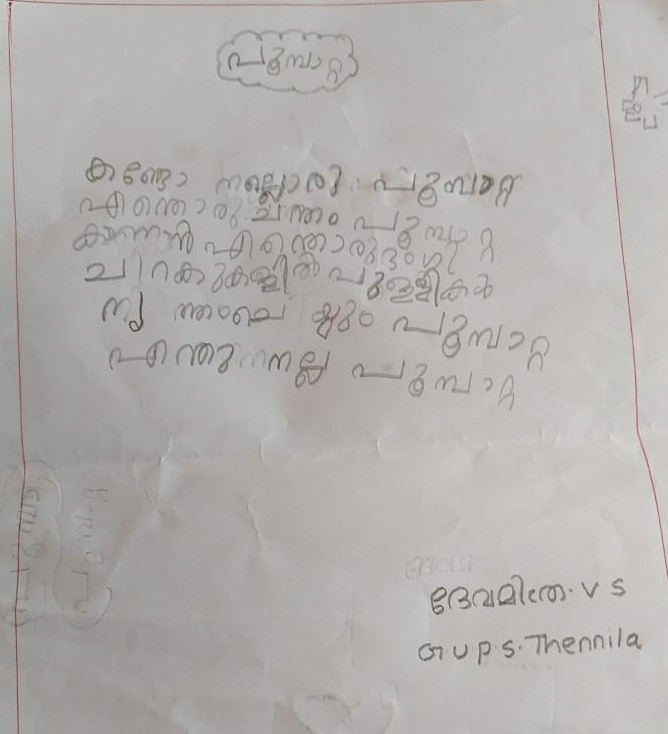 പൂമ്പാറ്റ
കണ്ടോ നല്ലൊരു പൂമ്പാറ്റ
എന്തൊരു ചന്തം പൂമ്പാറ്റ
കാണാൻ എന്തൊരു ഭംഗി
ചിറകുകളിൽ പുള്ളികൾ
നൃത്തംചെയ്യും പൂമ്പാറ്റ
എന്തു നല്ല പൂമ്പാറ്റ
ദേവമിത്ര. V S
G U P S. Thennila